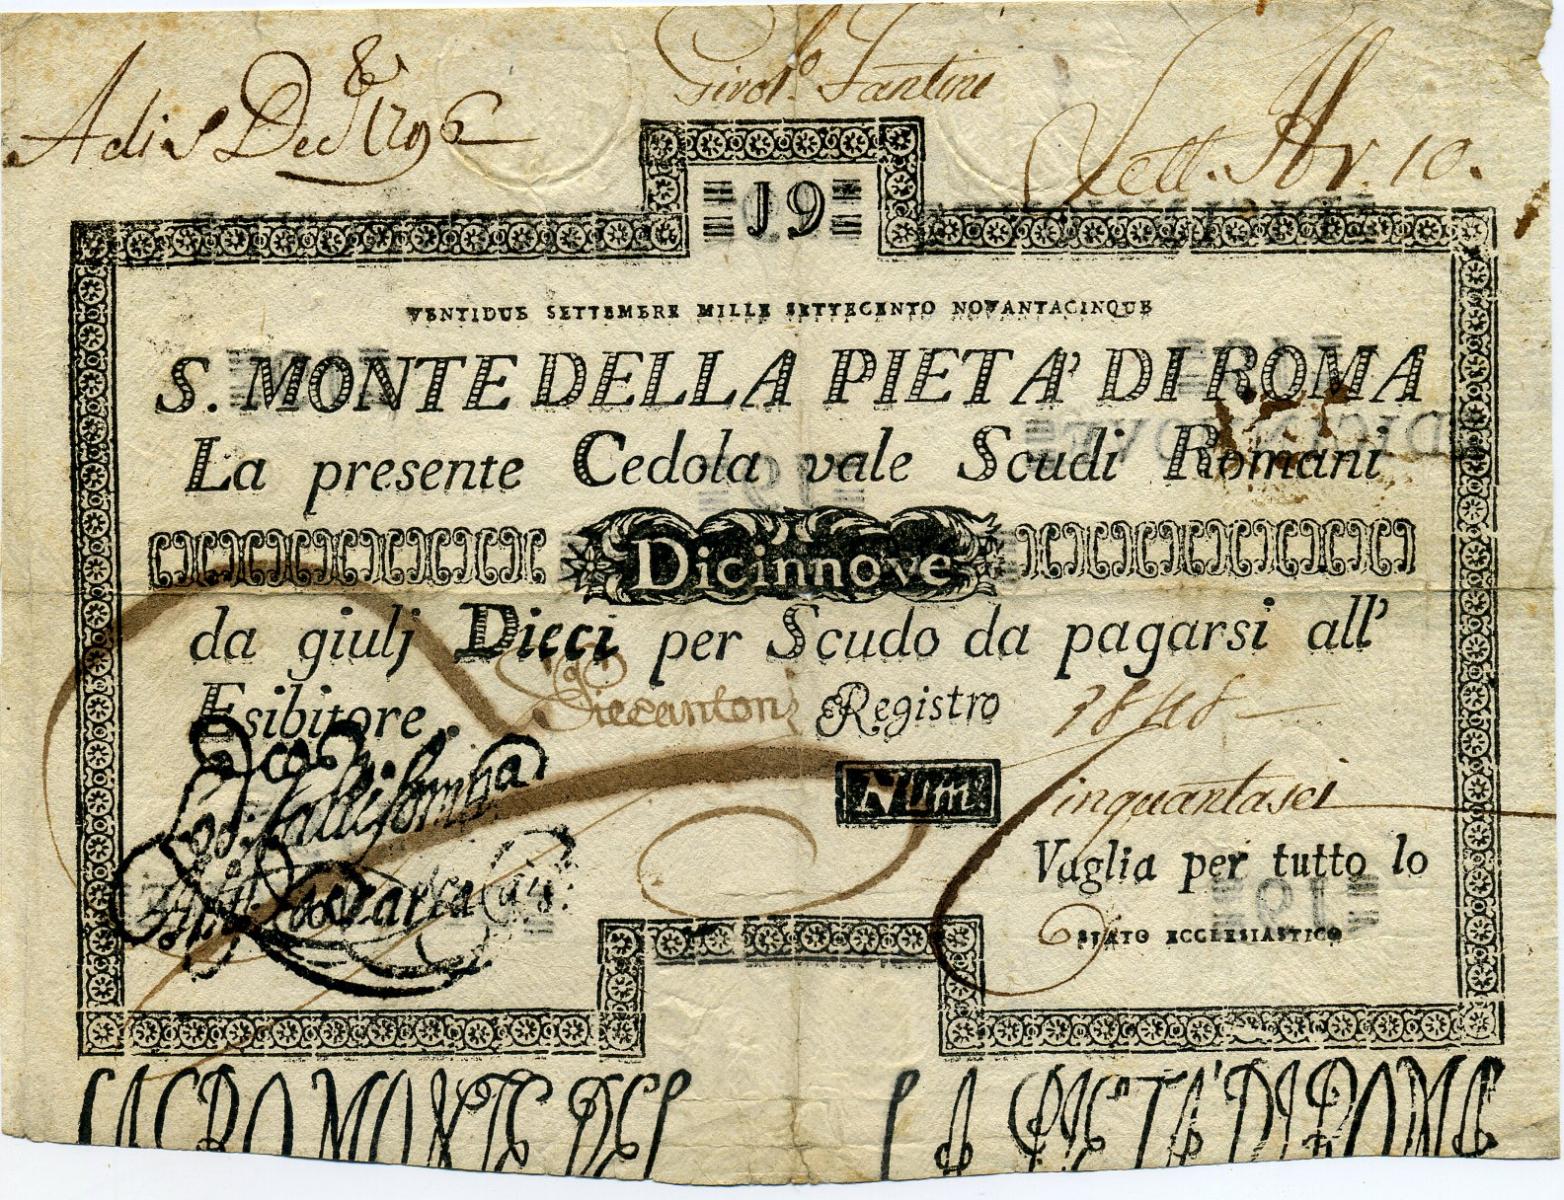 Adi 8 Dec.e 1796
Girol.o Fantini
Lett. Hr. 10.
19
VENTIDUE SETTEMBRE MILLE SETTECENTO NOVANTACINQUE
S. MONTE DELLA PIETA' DI ROMA
La presente Cedola vale Scudi Romani
Dicinnove
da giulj Dieci per Scudo da pagarsi all'
Esibitore. Registro 1848
Num Cinquantasei
Vaglia per tutto lo
STATO ECCLESIASTICO
SACRO MONTE DEL LA PIETA' DI ROMA